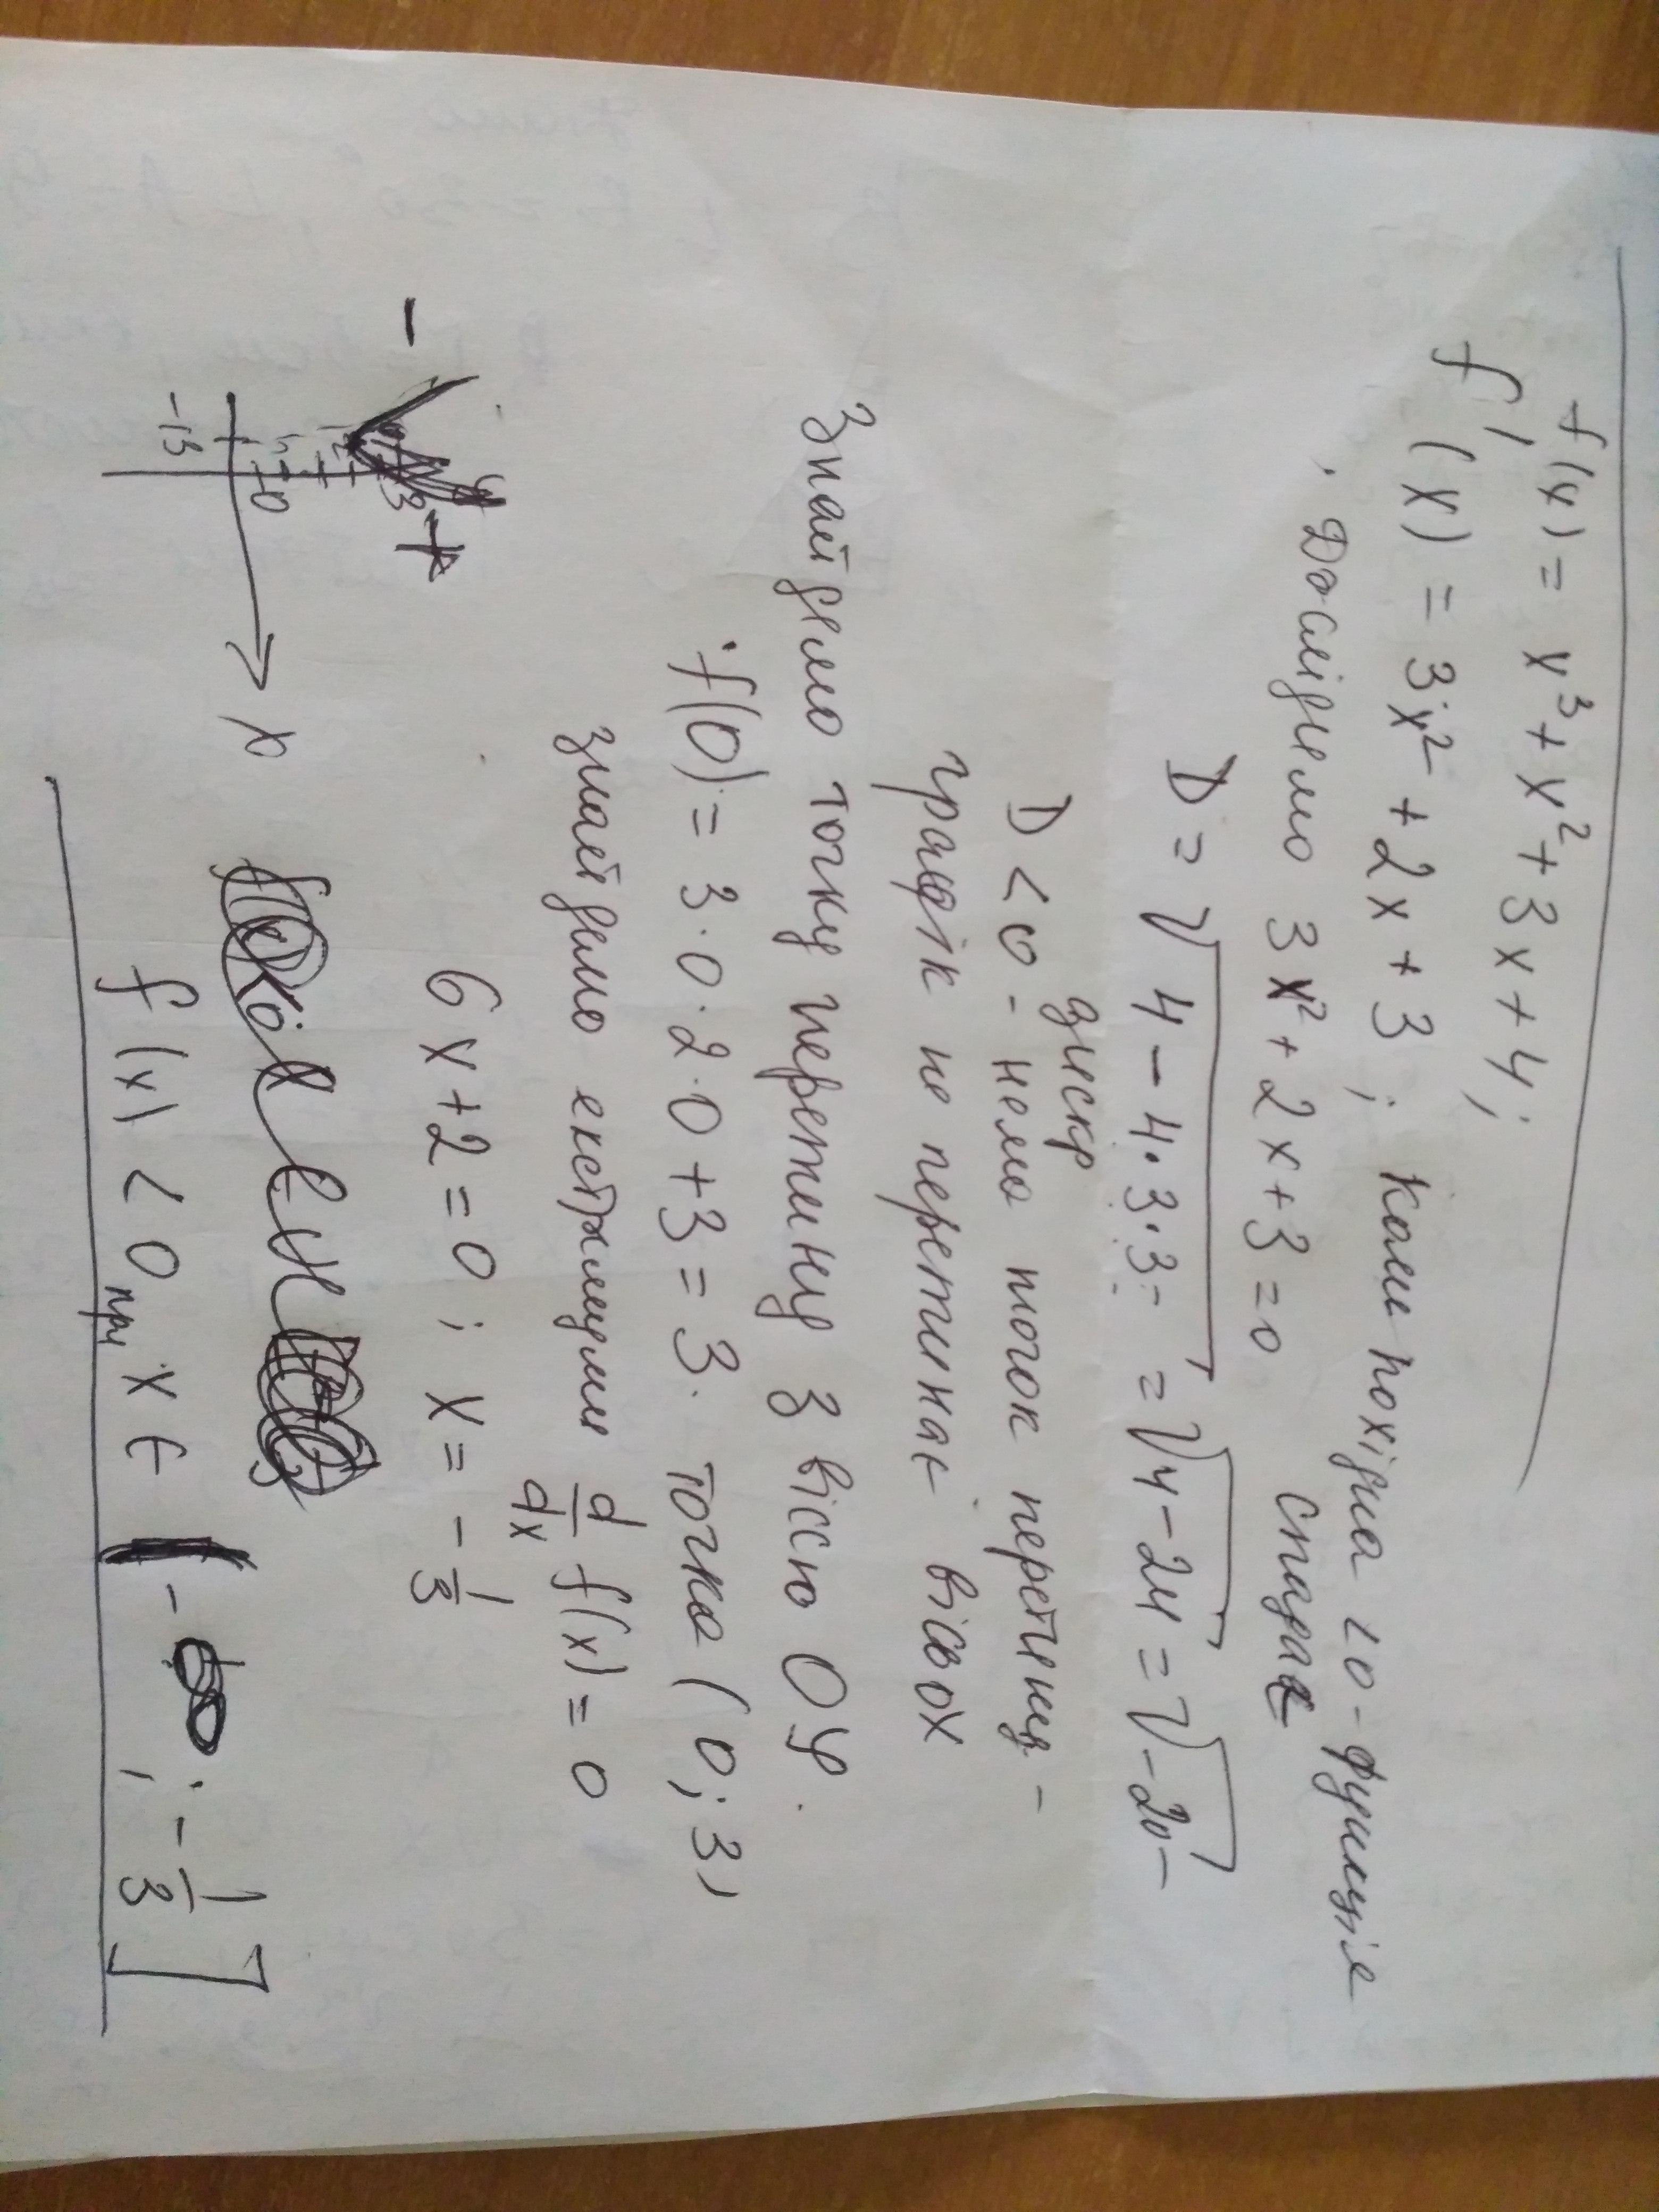 f(x) = x³ + x² + 3x + 4;
f'(x) = 3x² + 2x + 3; Коли похідна <0 - функція спадає
. Дослідемо 3x² + 2x + 3 = 0
D = √4 - 4·3·3 = = √4 - 24 = √-20 -
D < 0 - нема точок перетину -
дискр
графік не перетинає вісь ox
Знайдемо точку перетину з віссю Oy.
f(0) = 3·0·2·0 + 3 = 3. точка (0; 3)
знайдемо екстремуми d/dx f(x) = 0
6x + 2 = 0; x = -1/3
- + 3 0 -1/3 x
f(x) < 0 при x ∈ (-∞; -1/3]